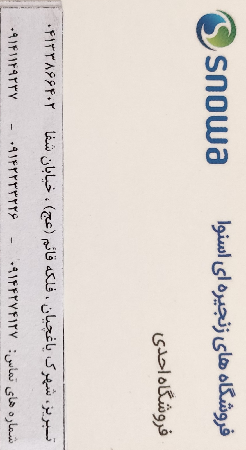 snowa
فروشگاه های زنجیره ای اسنوا
فروشگاه احدی
تبریز، شهرک باغچبان، فلکه قائم (عج)، خیابان شفا ۰۴۱۳۳۸۶۶۴۰۲
شماره های تماس: ۰۹۱۴۴۲۷۴۱۲۷ - ۰۹۱۴۱۱۴۹۲۳۷